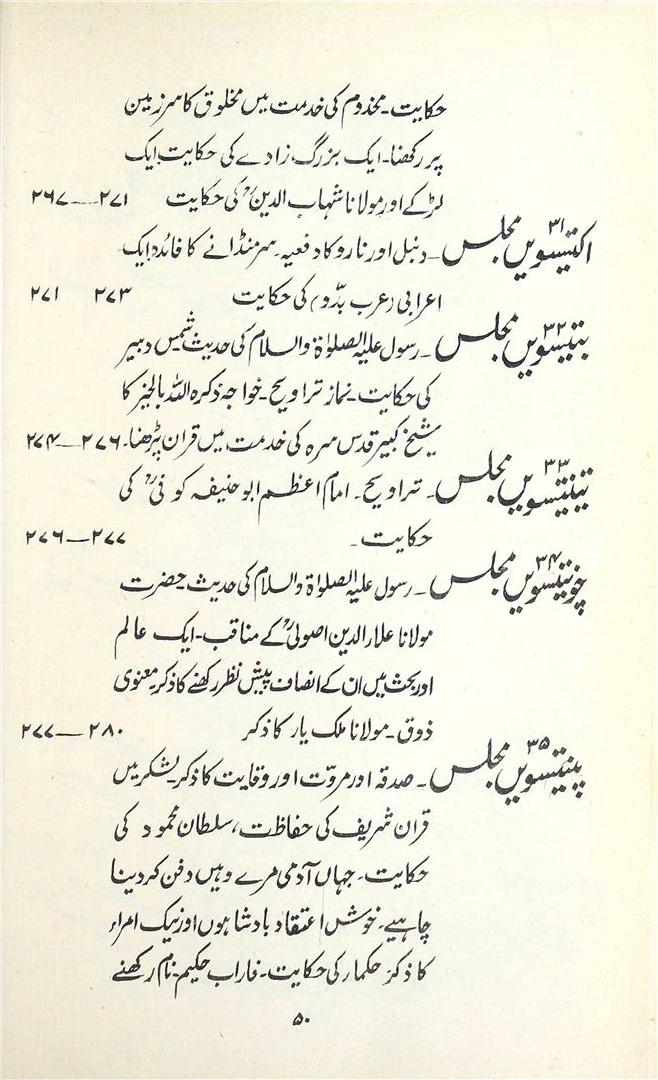 حکایت۔ مخدوم کی خدمت میں مخلوق کا سر زمین
پر رکھنا۔ ایک بزرگ زادے کی حکایت۔ ایک
لڑکے اور مولانا شہاب الدینؒ کی حکایت ۲۷۱—۲۶۷
اکتیسویں ۳۱ مجلس ۔ دنبل اور نارو کا دفعیہ۔ سر منڈانے کا فائدہ۔ ایک
اعرابی (عرب بدّو) کی حکایت ۲۷۳ ۲۷۱
بتیسویں ۳۲ مجلس ۔ رسول علیہ الصلوٰۃ والسلام کی حدیث۔ شمس دبیر
کی حکایت۔ نماز تراویح۔ خواجہ ذکرہ اللہ بالخیر کا
شیخ کبیر قدس سرہ کی خدمت میں قران پڑھنا۔ ۲۷۶—۲۷۴
تینتیسویں ۳۳ مجلس ۔ تراویح۔ امام اعظم ابو حنیفہ کوفیؒ کی
حکایت۔ ۲۷۷—۲۷۶
چونتیسویں ۳۴ مجلس ۔ رسول علیہ الصلواۃ والسلام کی حدیث۔ حضرت
مولانا علاء الدین اصولیؒ کے مناقب۔ ایک عالم
اور بحث میں ان کے انصاف پیش نظر رکھنے کا ذکر۔ معنوی
ذوق۔ مولانا ملک یار کا ذکر ۲۸۰—۲۷۷
پینتیسویں ۳۵ مجلس ۔ صدقہ اور مروّت اور وقایت کا ذکر۔ لشکر میں
قران شریف کی حفاظت، سلطان محمود کی
حکایت۔ جہاں آدمی مرے وہیں دفن کر دینا
چاہیے۔ خوش اعتقاد بادشاہوں اور نیک امراء
کا ذکر۔ حکماء کی حکایت۔ فاراب حکیم۔ نام رکھنے
۵۰